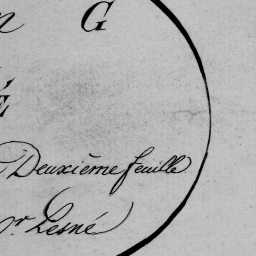 n G
É
Deuxième feuille
r Lesné